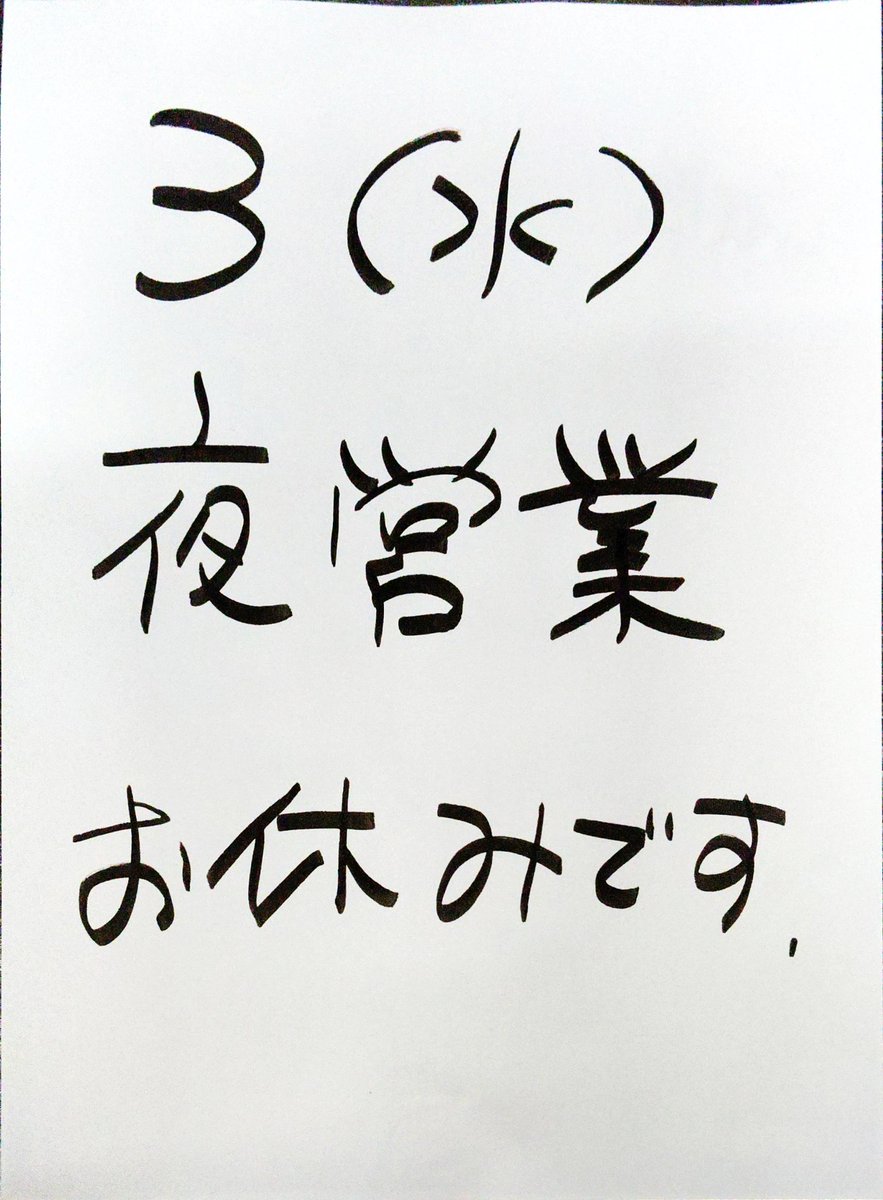 3(水)
夜営業
お休みです.